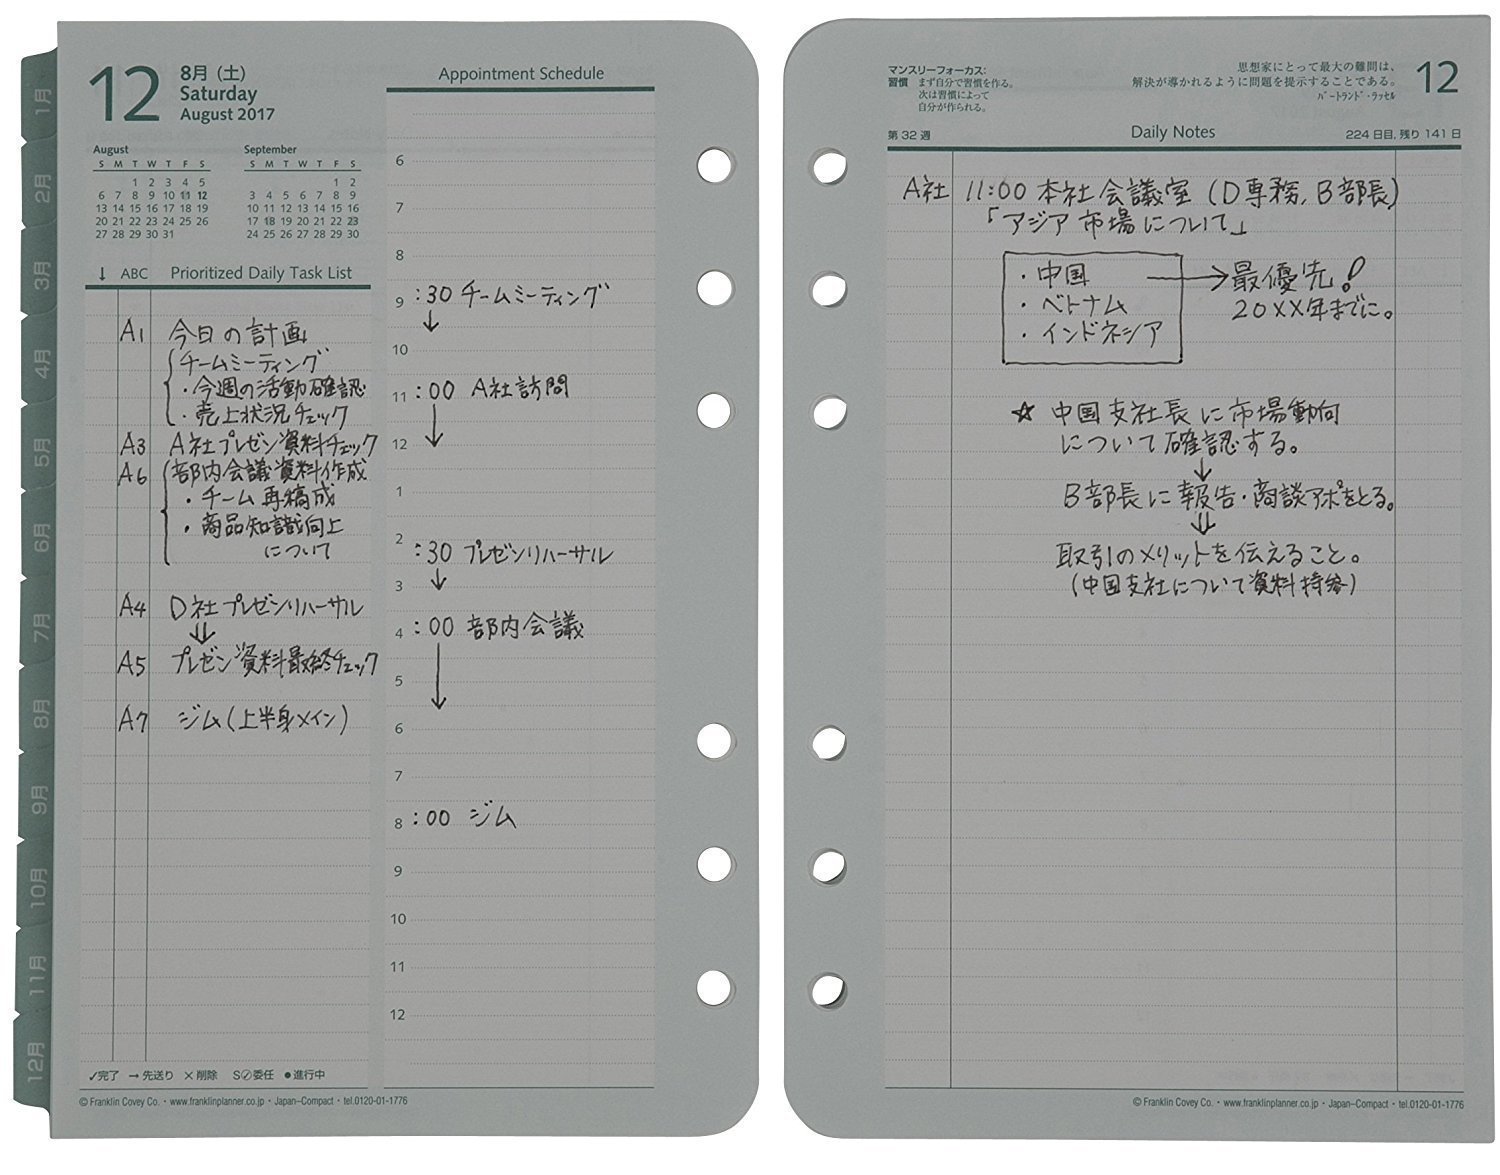 1月
2月
3月
4月
5月
6月
7月
8月
9月
10月
11月
12月
12
8月 (土)
Saturday
August 2017
August
S M T W T F S
1 2 3 4 5
6 7 8 9 10 11 12
13 14 15 16 17 18 19
20 21 22 23 24 25 26
27 28 29 30 31
September
S M T W T F S
1 2
3 4 5 6 7 8 9
10 11 12 13 14 15 16
17 18 19 20 21 22 23
24 25 26 27 28 29 30
↓ ABC Prioritized Daily Task List
A1 今日の計画
チームミーティング
・今週の活動確認
・売上状況チェック
A3 A社プレゼン資料チェック
A6 部内会議資料作成
・チーム再編成
・商品知識向上
について
A4 D社プレゼンリハーサル
⇓
A5 プレゼン資料最終チェック
A7 ジム(上半身メイン)
✓完了 →先送り ×削除 S✓委任 ●進行中
Appointment Schedule
6
7
8
9 :30 チームミーティング
↓
10
11 :00 A社訪問
↓
12
1
2 :30 プレゼンリハーサル
↓
3
4 :00 部内会議
↓
5
6
7
8 :00 ジム
9
10
11
12
© Franklin Covey Co. • www.franklinplanner.co.jp • Japan–Compact • tel.0120-01-1776
マンスリーフォーカス:
習慣 まず自分で習慣を作る。
次は習慣によって
自分が作られる。
思想家にとって最大の難問は、
解決が導かれるように問題を提示することである。
バートランド・ラッセル
12
第 32 週
Daily Notes
224 日目, 残り 141 日
A社 11:00 本社会議室 (D専務, B部長)
「アジア市場について」
・中国 → 最優先!
・ベトナム 20XX年までに。
・インドネシア
☆ 中国支社長に市場動向
について確認する。
↓
B部長に報告・商談アポをとる。
⇓
取引のメリットを伝えること。
(中国支社について資料持参)
© Franklin Covey Co. • www.franklinplanner.co.jp • Japan–Compact • tel.0120-01-1776